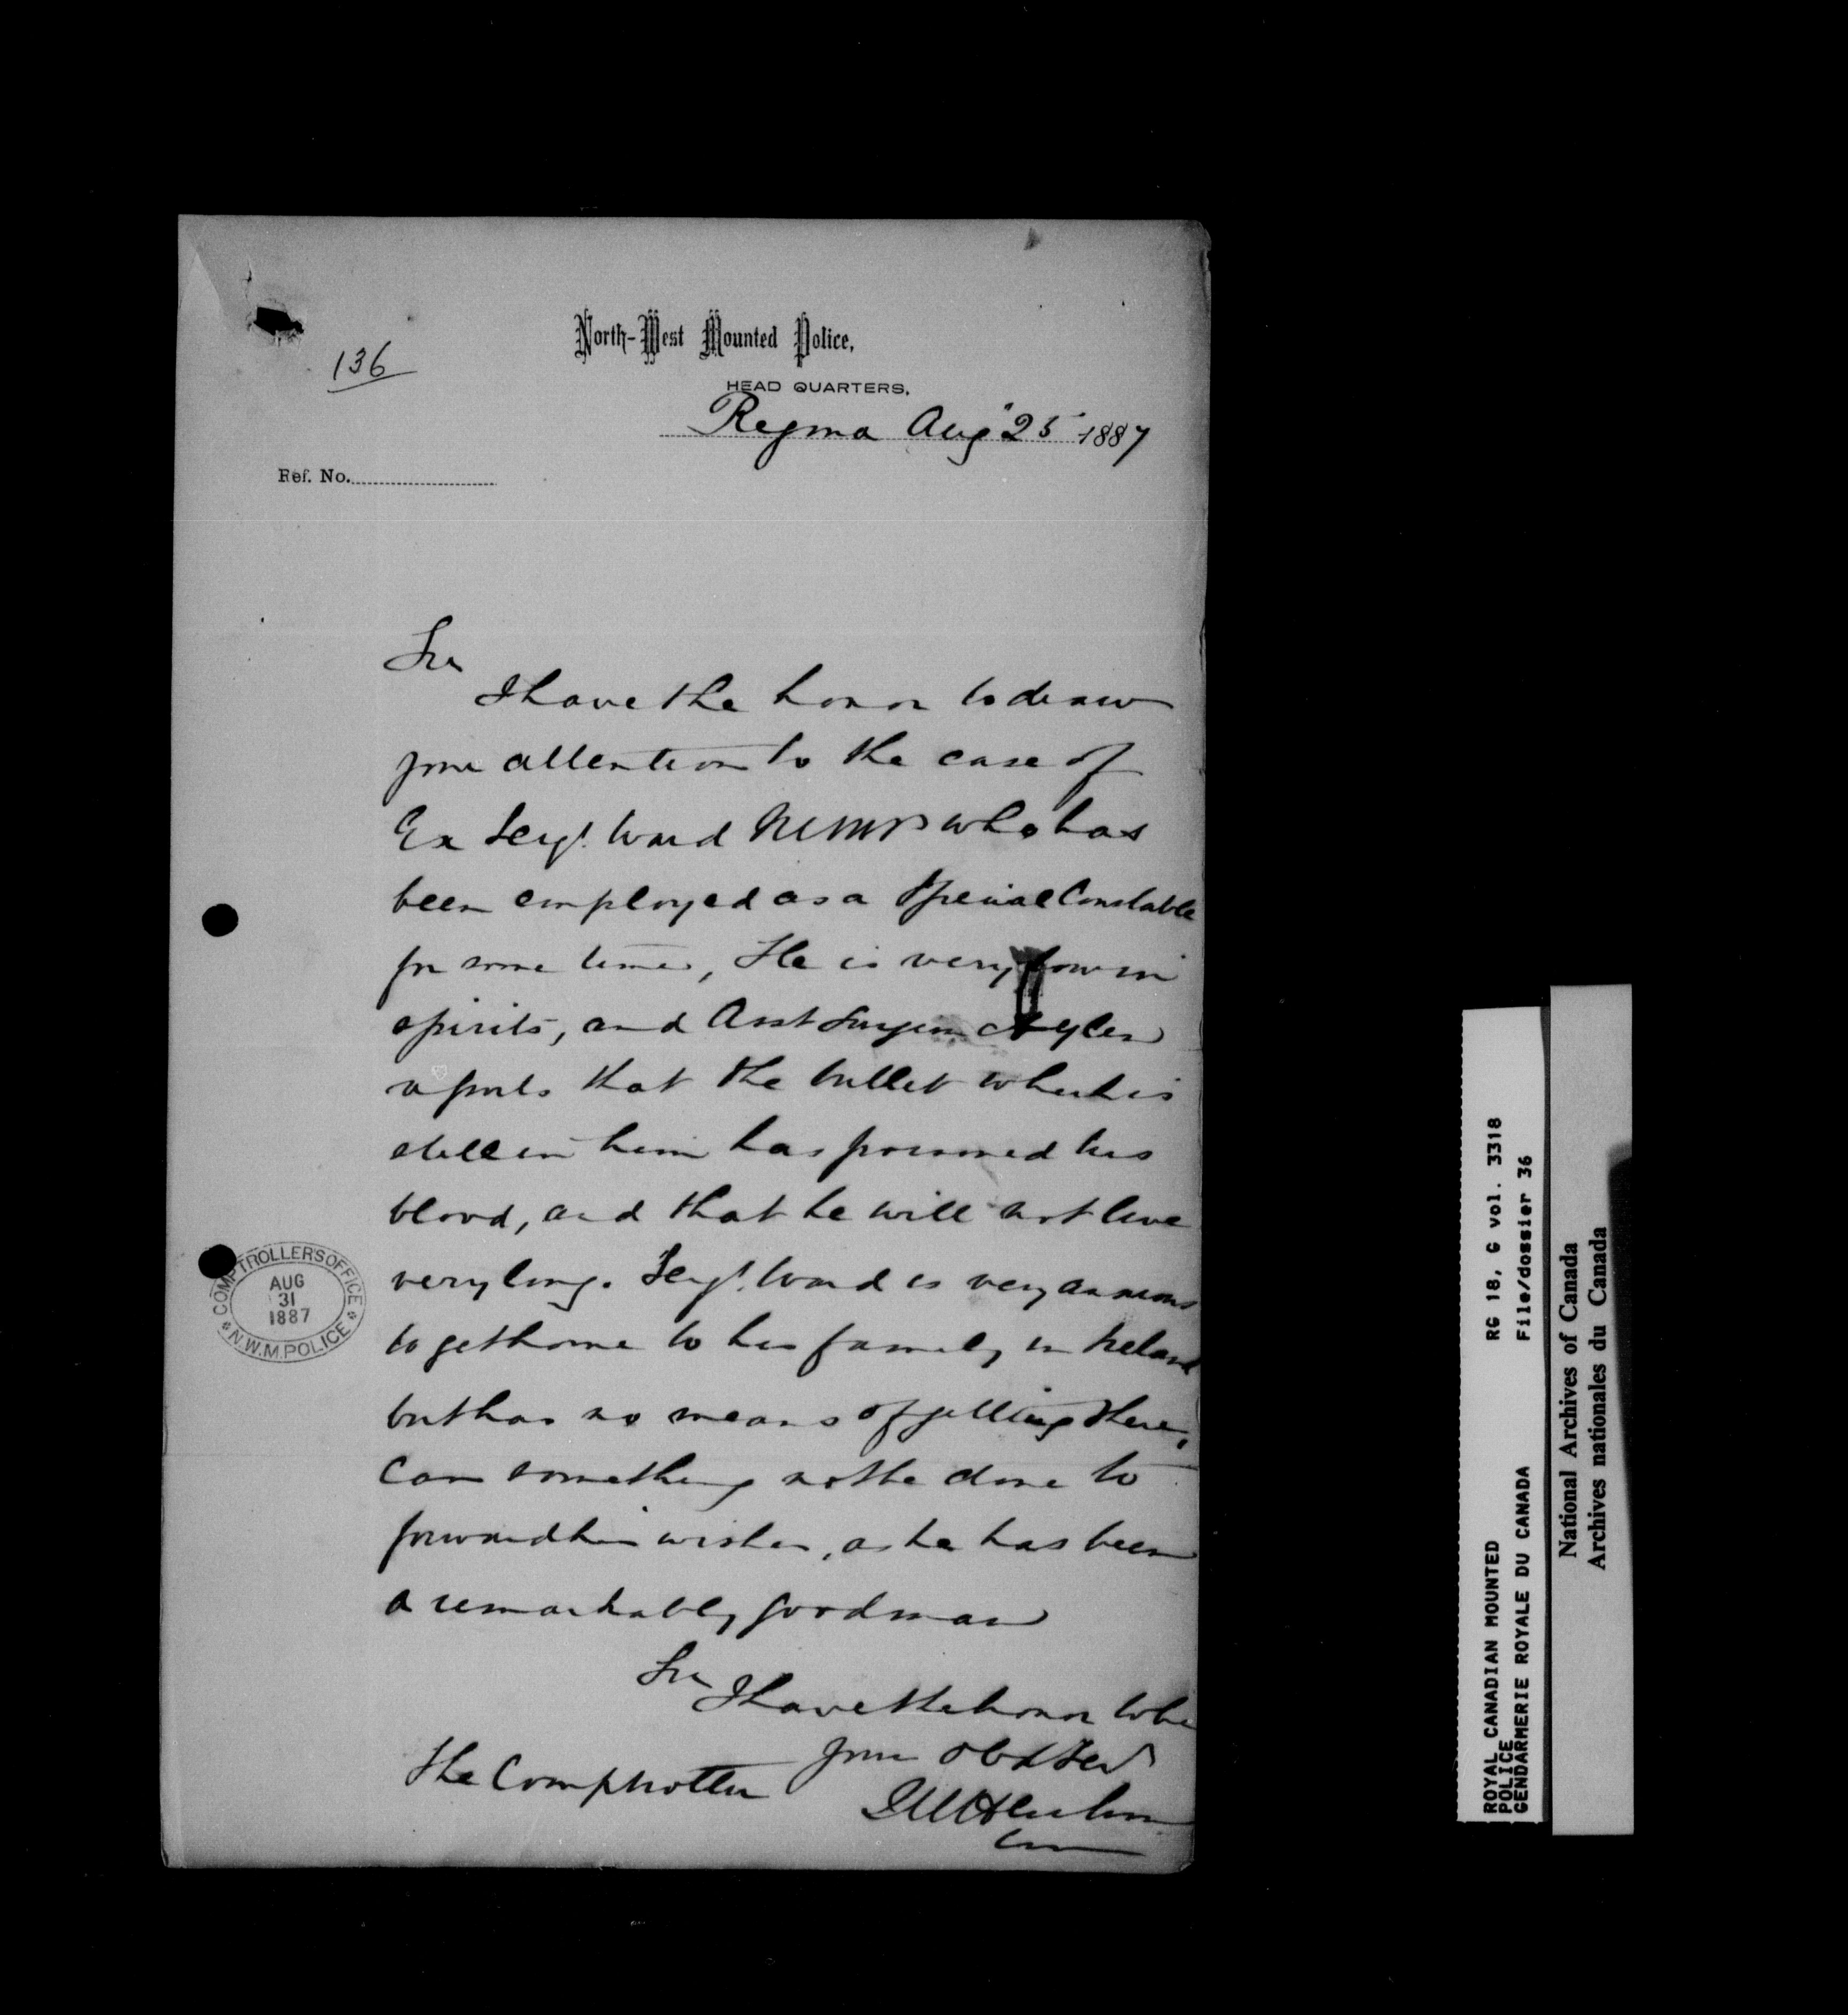 136
North-West Mounted Police,
HEAD QUARTERS,
Regina Aug 25 1887
Ref. No.
Sir
I have the honor to draw
your attention to the case of
Ex Sergt. Ward NWMP who has
been employed as a Special Constable
for some time, He is very low in
spirits, and Asst Surgeon
reports that the bullet which is
still in him has poisoned his
blood, and that he will not live
very long. Sergt. Ward is very anxious
to get home to his family in Ireland
but has no means of getting there,
Can something not be done to
forward his wishes, as he has been
a remarkably good man
Sir
I have the honor to be
your Obdt Servt
The Comptroller
COMPTROLLER'S OFFICE
AUG
31
1887
N.W.M. POLICE
ROYAL CANADIAN MOUNTED
POLICE
GENDARMERIE ROYALE DU CANADA
RG 18, G vol. 3318
File/dossier 36
National Archives of Canada
Archives nationales du Canada